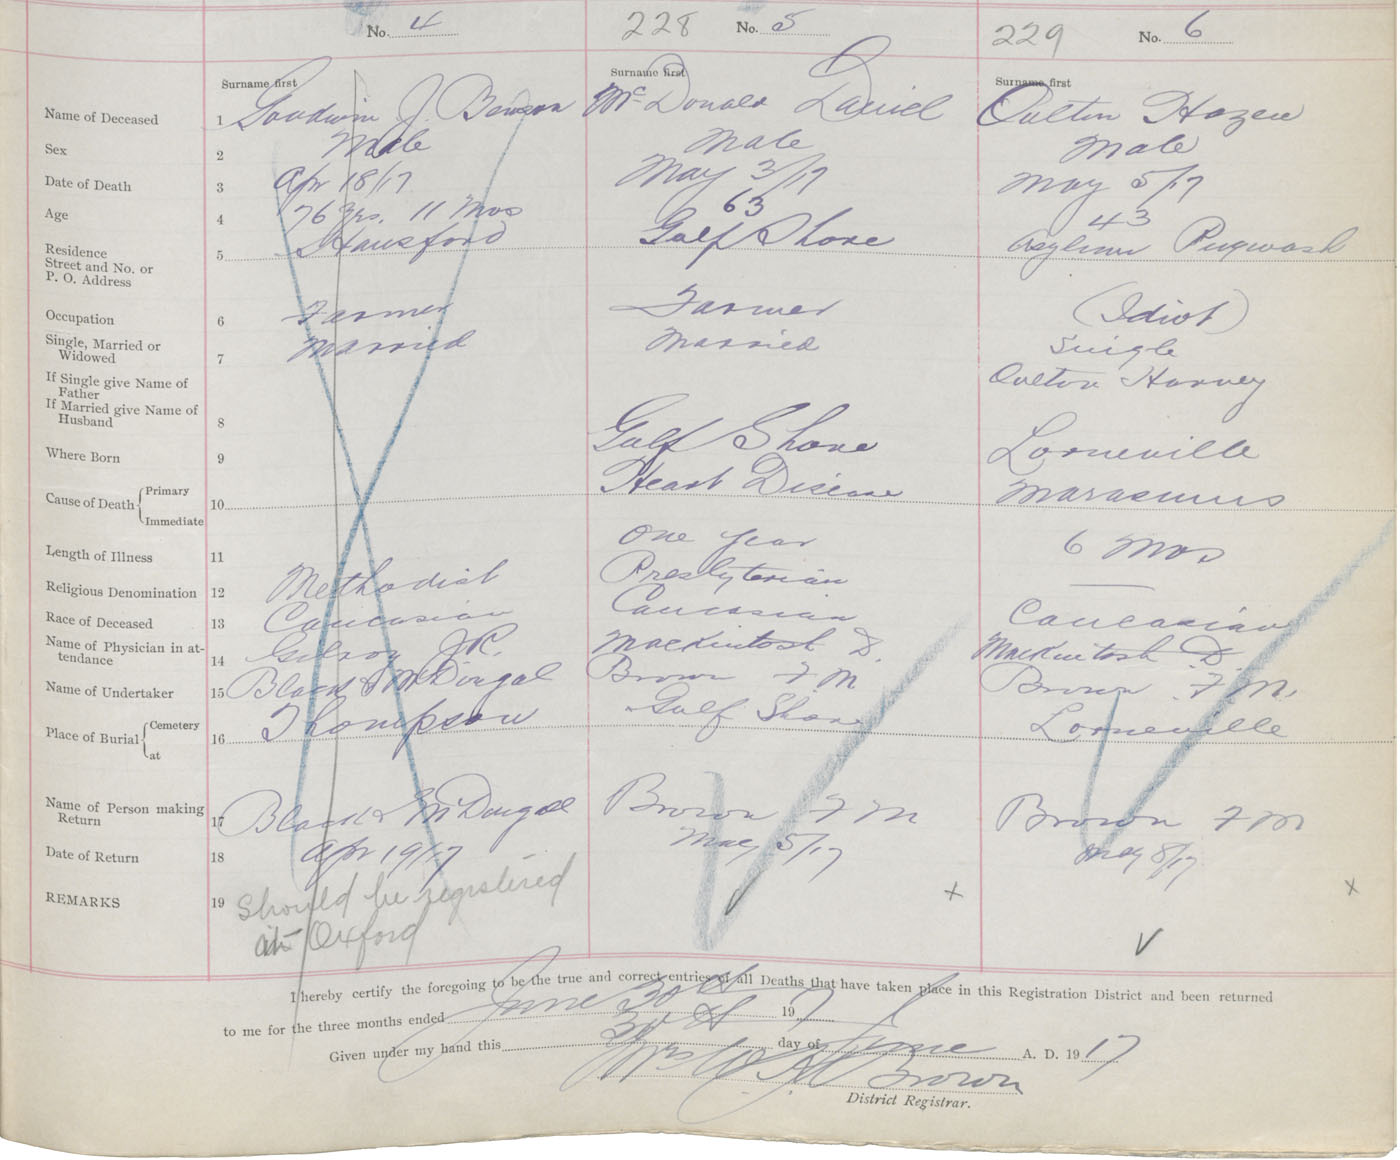 No. 4
228 No. 5
229 No. 6
Surname first Surname first Surname first
Name of Deceased 1 Goodwin J. Benson McDonald Daniel Oulton Hazen
Sex 2 Male Male Male
Date of Death 3 Apr 18/17 May 3/17 May 5/17
Age 4 76 yrs. 11 Mos 63 43
Residence
Street and No. or
P. O. Address 5 Hansford Gulf Shore Asylum Pugwash
Occupation 6 Farmer Farmer (Idiot)
Single, Married or
Widowed 7 Married Married Single
If Single give Name of
Father
If Married give Name of
Husband 8 Oulton Harvey
Where Born 9 Gulf Shore Lorneville
Cause of Death Primary
Immediate 10 Heart Disease Marasmus
Length of Illness 11 One year 6 Mos
Religious Denomination 12 Methodist Presbyterian —
Race of Deceased 13 Caucasian Caucasian Caucasian
Name of Physician in at-
tendance 14 Gilroy J.R. Mackintosh D. Mackintosh D.
Name of Undertaker 15 Black & McDougal Brown F M Brown F. M.
Place of Burial Cemetery
at 16 Thompson Gulf Shore Lorneville
Name of Person making
Return 17 Black & McDougal Brown F M Brown F M
Date of Return 18 Apr 19/17 May 5/17 May 8/17
REMARKS 19 Should be registered
at Oxford
I hereby certify the foregoing to be the true and correct entries of all Deaths that have taken place in this Registration District and been returned
to me for the three months ended June 30th 1917
Given under my hand this 30th day of June A. D. 1917
Mrs W. A. Brown
District Registrar.